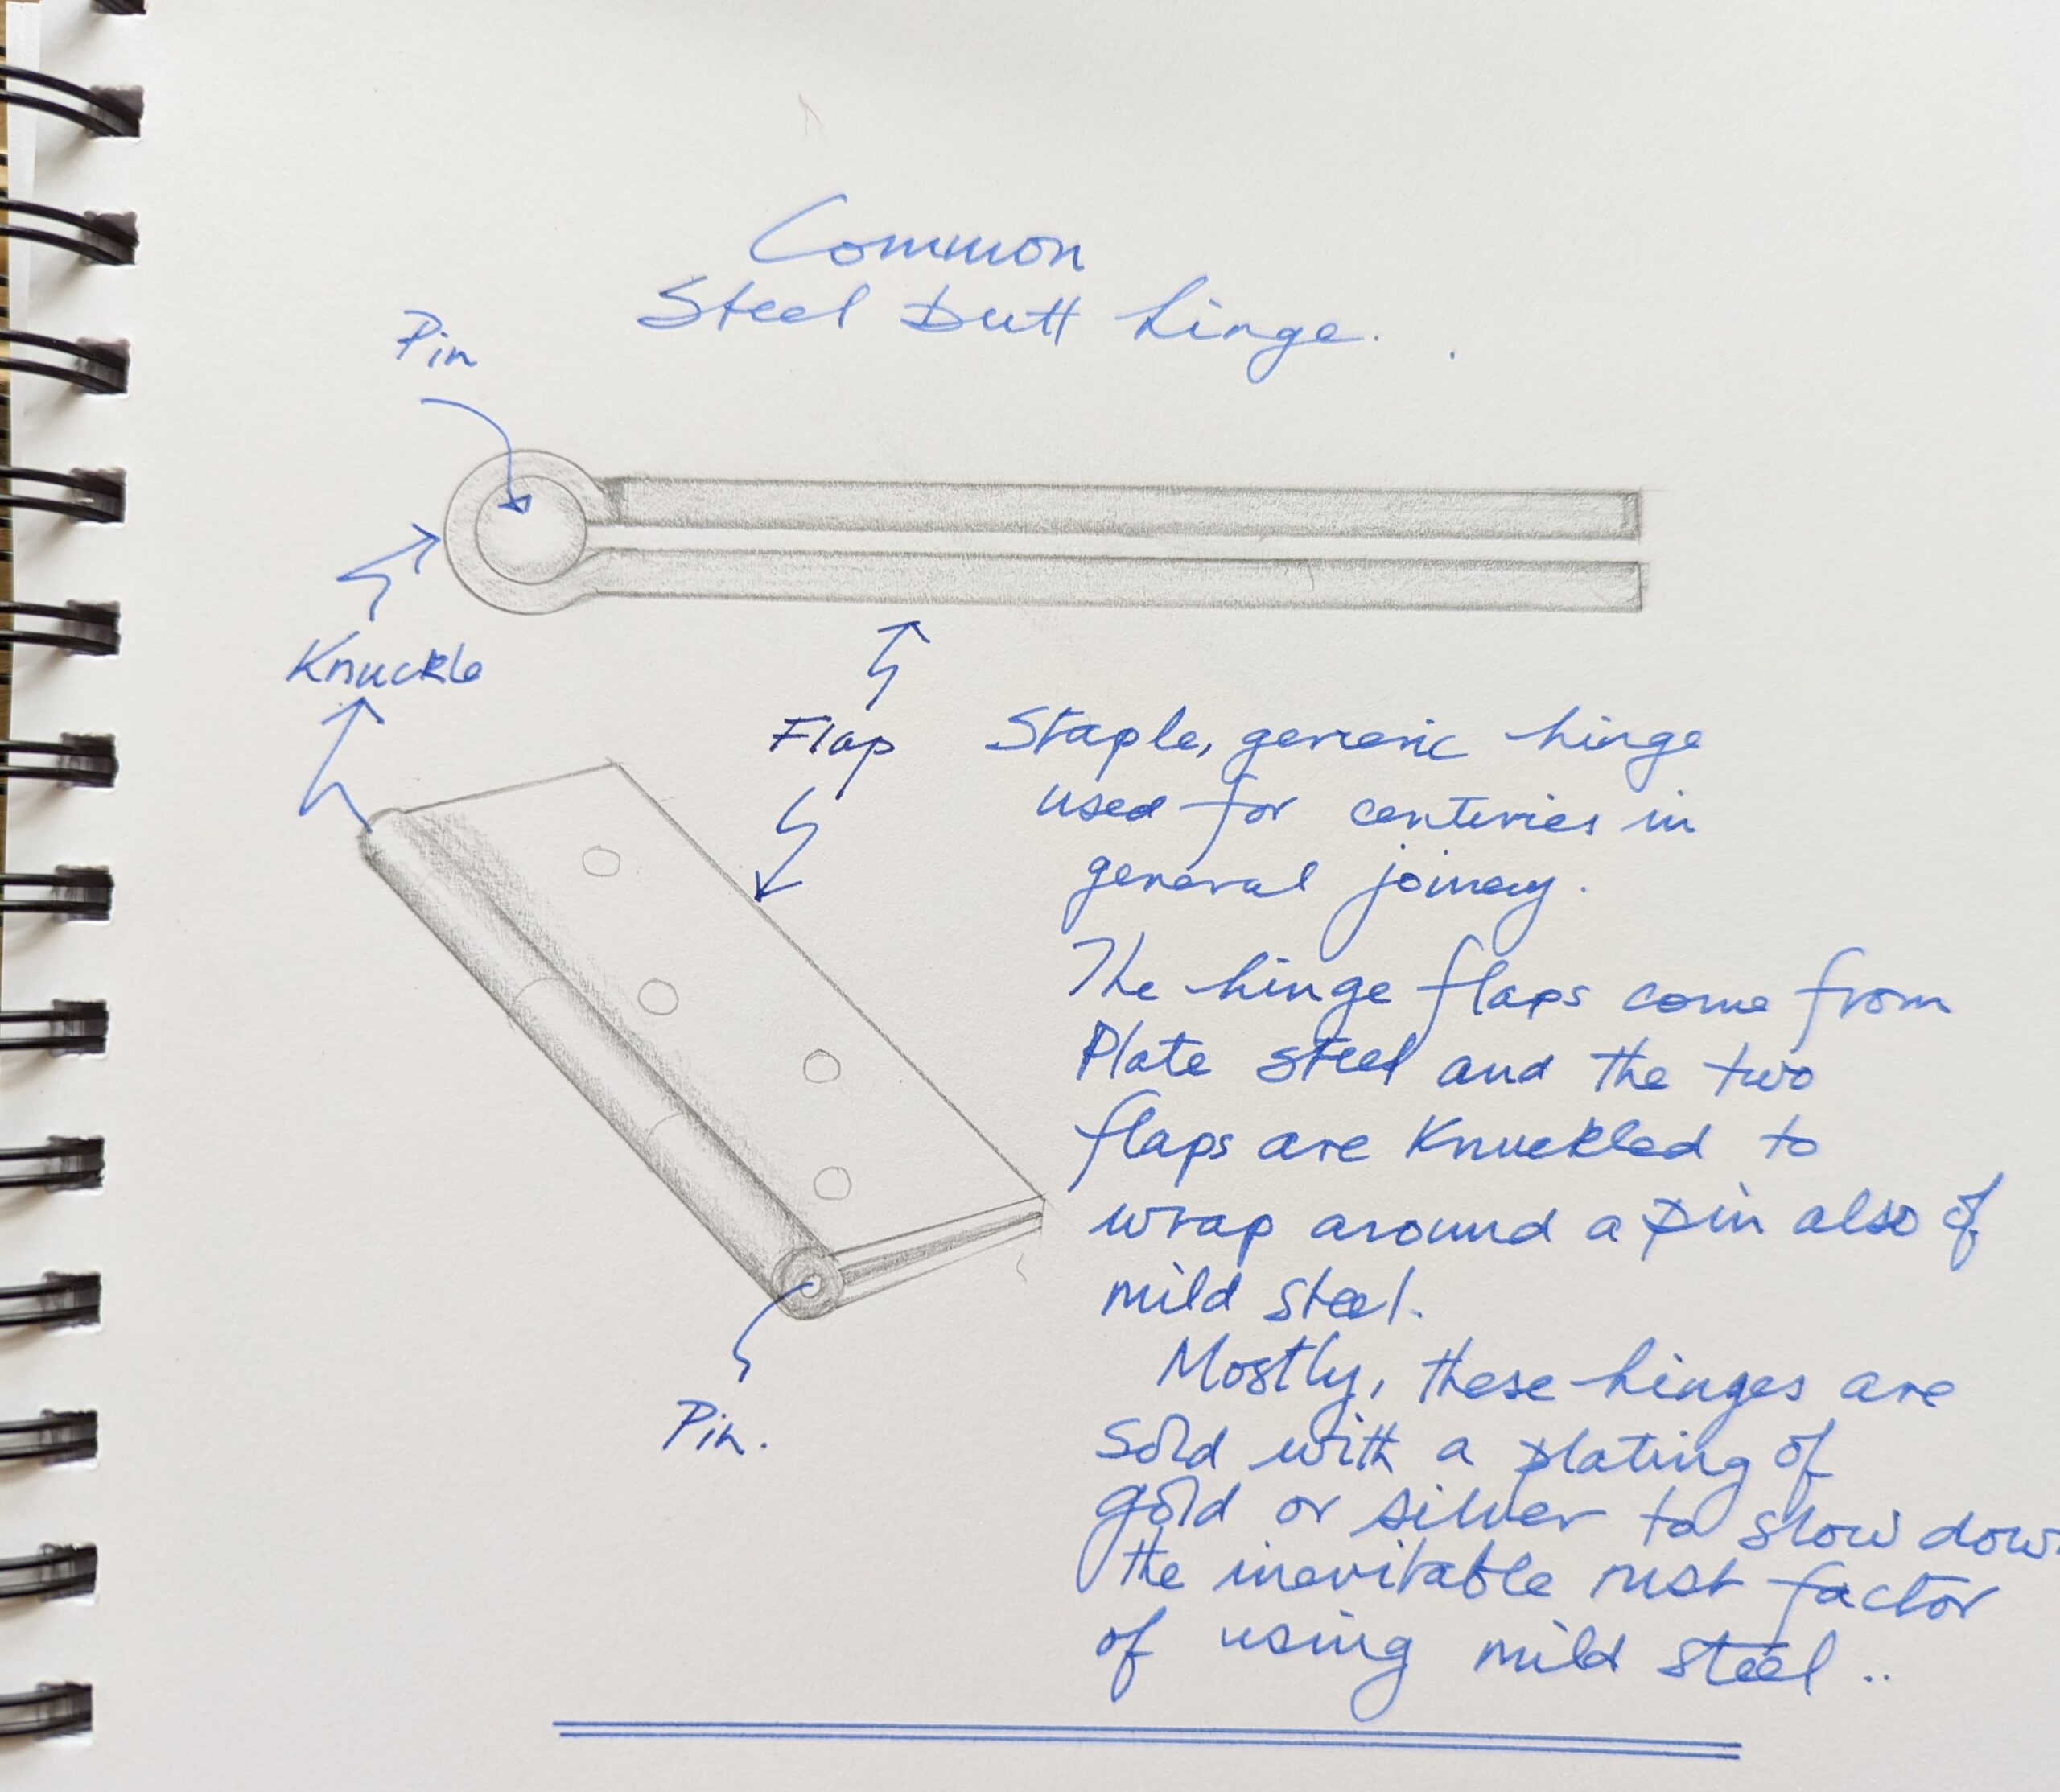 Common
Steel Butt hinge.
Pin
Knuckle
Flap
Pin.
Staple, generic hinge
used for centuries in
general joinery.
The hinge flaps come from
Plate steel and the two
flaps are Knuckled to
wrap around a pin also of
mild steel.
Mostly, these hinges are
sold with a plating of
gold or silver to slow down
the inevitable rust factor
of using mild steel..